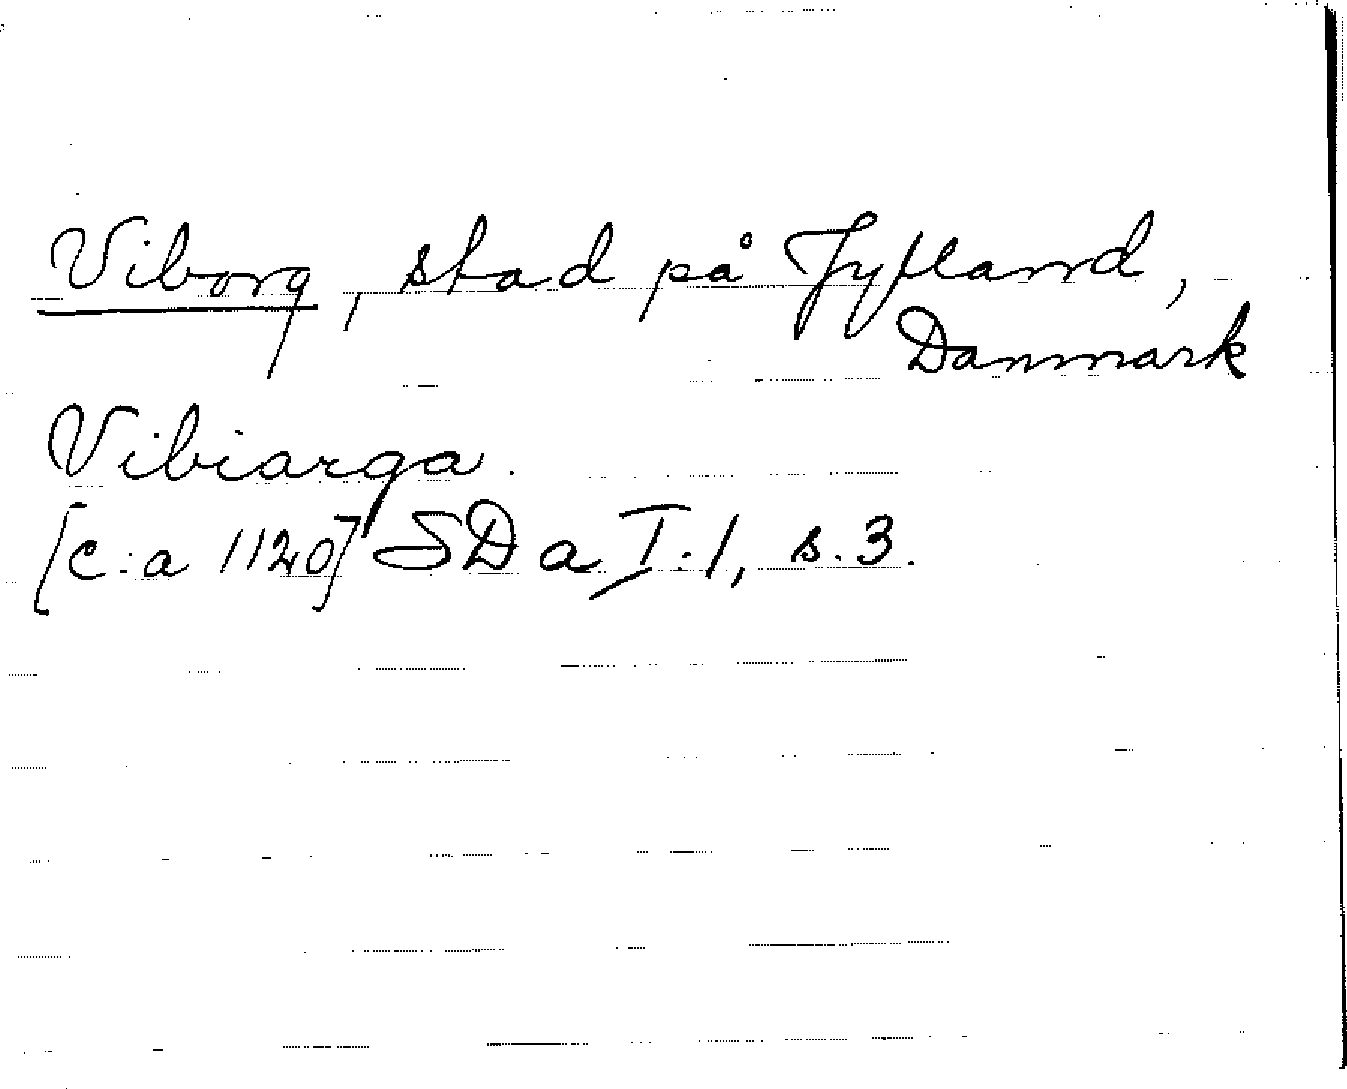 Viborg, stad på Jylland,
Danmark
Vibiarga.
[c:a 1120] SD a I:1, s. 3.